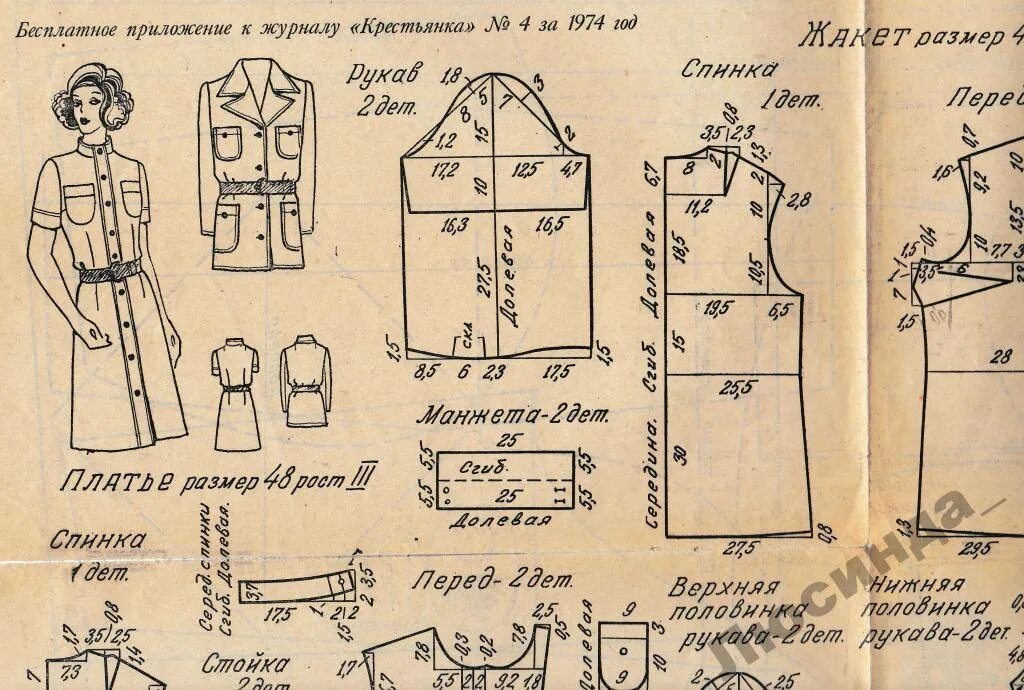 Бесплатное приложение к журналу «Крестьянка» № 4 за 1974 год
ЖАКЕТ размер 4
Рукав
2 дет.
1,8
5
7
3
8
15
1,2
2
1
17,2
12,5
4,7
10
16,3
16,5
27,5
Долевая
скл
1,5
1,5
8,5
6
2,3
17,5
Спинка
1 дет.
3,5
0,8
2,3
1,3
6,7
8
2
2
11,2
10
2,8
18,5
10,5
19,5
6,5
15
25,5
30
Середина. Сгиб. Долевая
27,5
0,8
Перед
0,7
1,6
9,2
10
13,5
1,5
0,4
10
7,7
3
1
3,5
6
7
1,5
28
1,3
29,5
Манжета-2 дет.
25
5,5
Сгиб.
5,5
5,5
25
5,5
Долевая
ПЛАТЬЕ размер 48 рост III
Спинка
1 дет.
Серед. спинки
Сгиб. Долевая.
3,7
17,5
1
2
2
1,5
1
2
3,5
Стойка
2 дет.
1,7
3,5
0,8
2,5
1,4
7
7,3
Перед-2 дет.
1,7
7,8
0,3
-0,2
7,8
2,5
0,5
5,5
2
2
9,2
1,8
Долевая
9
3
10
9
Верхняя
половинка
рукава-2 дет.
2
2,5
Нижняя
половинка
рукава-2 дет.
4,8
Люсинда_